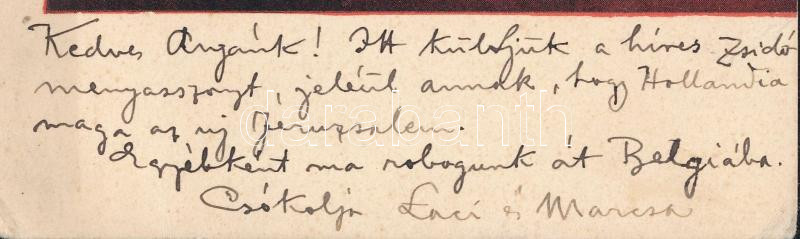 Kedves Anyánk! Itt küldjük a híres Zsidó
menyasszonyt, jeléül annak, hogy Hollandia
maga az uj Jeruzsalem.
Egyébként ma robogunk át Belgiába.
Csókolja Laci és Marcsa
darabanth